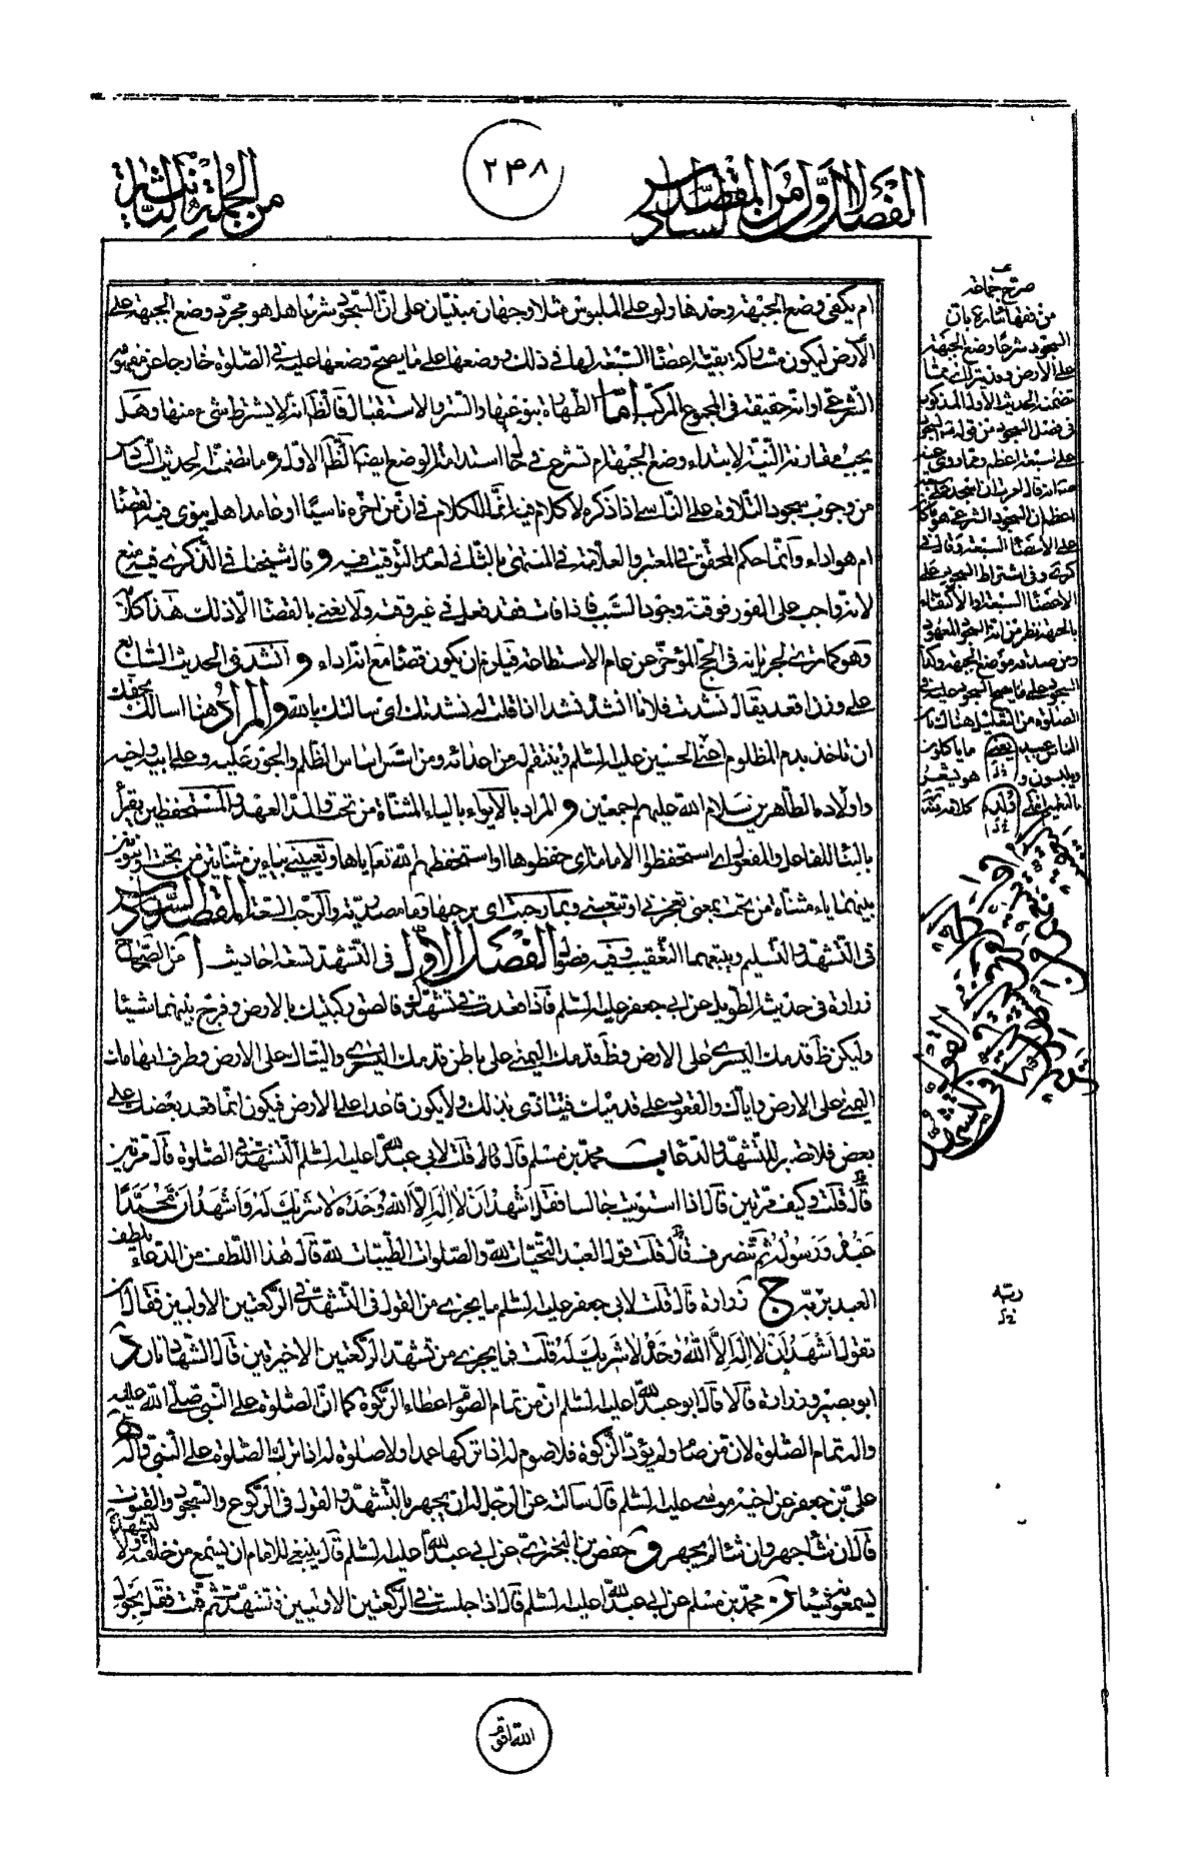 الفصل الأول من المقصد السادس
٢٤٨
من الجملة الثانية
ام يكفى وضع الجبهة وحدها ولو على الملبوس مثلا وجهان مبنيان على ان السجود شرعا هل هو مجرد وضع الجبهة على
الأرض ليكون مشاركة بقية اعضاء السبعة لها فى ذلك ووضعها على ما يصح وضعها عليه فى الصلوة خارجا عن مفهومه
الشرعى او انه حقيقة فى المجموع المركب اما الطهارة بنوعيها والستر والاستقبال فالظ انه لا يشترط شىء منها وهل
يجب مقارنة النية لابتداء وضع الجبهة ام تشرع فى حال استدامة الوضع ايضا الظ الاول وما تضمنه الحديث السادس
من وجوب سجود التلاوة على الناسى اذا ذكره لا كلام فيه انما الكلام فى ان من اخره ناسيا او عامدا هل ينوى فيه القضاء
ام هو اداء وانما حكم المحقق فى المعتبر والعلامة فى المنتهى بالثانى لعدم التوقيت فيه وقال شيخنا فى الذكرى فيه منع
لانه واجب على الفور فوقته وجود السبب فاذا فات فقد فعل فى غير وقته ولا يعنى بالقضاء الا ذلك هذا كلامه
وهو كما ترى لجريانه فى الحج المؤخر عن عام الاستطاعة فيلزم ان يكون قضاء مع انه اداء و انشد فى الحديث السابع
على وزن اقعد يقال نشدت فلانا انشده نشدا اذا قلت له نشدتك اى سالتك بالله والمراد هنا اسالك بحقك
ان تاخذ بدم المظلوم اعنى الحسين عليه السلم وتنتقم له من اعدائه ومن اسس اساس الظلم والجور عليه وعلى ابيه واخيه
واولاده الطاهرين سلام الله عليهم اجمعين و المراد بالايواء بالياء المثناة من تحت والمد العهد والمستحفظين يقرأ
بالبناء للفاعل والمفعول اى استحفظوا الامامة اى حفظوها او استحفظهم الله تعالى اياها وتعيينى بياءين مثناتين من تحت
بينهما ياء مثناة من تحت بمعنى تعجزنى او تتعبنى وبما رحبت اى برحبها وما مصدرية والرحب السعة المقصد السادس
فى التشهد والتسليم ويتبعهما التعقيب وفيه فصول الفصل الاول فى التشهد تسعة احاديث ا من الصحاح
زرارة فى حديثه الطويل عن ابى جعفر عليه السلم فاذا قعدت فى تشهدك فالصق ركبتيك بالارض وفرج بينهما شيئا
وليكن ظ قدمك اليسرى على الارض وظ قدمك اليمنى على باطن قدمك اليسرى واليتاك على الارض وطرف ابهامك
اليمنى على الارض واياك والقعود على قدميك فتتاذى بذلك ولا يكون قاعدا على الارض فيكون انما قعد بعضك على
بعض فلا تصبر للتشهد والدعاء ب محمد بن مسلم قال قلت لابى عبد الله عليه السلم التشهد فى الصلوة قال مرتين
قال قلت وكيف مرتين قال اذا استويت جالسا فقل اشهد ان لا اله الا الله وحده لا شريك له واشهد ان محمدا
عبده ورسوله ثم تنصرف قال قلت قول العبد التحيات لله والصلوات الطيبات لله قال هذا اللطف من الدعاء يلطف
العبد به ربه ج زرارة قال قلت لابى جعفر عليه السلم ما يجزى من القول فى التشهد فى الركعتين الاوليين فقال ان
تقول اشهد ان لا اله الا الله وحده لا شريك له قلت فما يجزى من تشهد الركعتين الاخيرتين قال الشهادتان د
ابو بصير وزرارة قالا قال ابو عبد الله عليه السلم ان من تمام الصوم اعطاء الزكوة كما ان الصلوة على النبى صلى الله عليه
واله تمام الصلوة لان من صام ولم يؤد الزكوة فلا صوم له اذا تركها عمدا ولا صلوة له اذا ترك الصلوة على النبى واله ه
على بن جعفر عن اخيه موسى عليه السلم قال سالته عن الرجل له ان يجهر بالتشهد والقول فى الركوع والسجود والقنوت
قال ان شاء جهر وان شاء لم يجهر و حفص بن البخترى عن ابى عبد الله عليه السلم قال ينبغى للامام ان يسمع من خلفه التشهد ولا
يسمعونه شيئا ز محمد بن مسلم عن ابى عبد الله عليه السلم قال اذا جلست فى الركعتين الاوليين فتشهدت ثم قمت فقل بحول
صرح جماعة
من فقهائنا رة بان
السجود شرعا وضع الجبهة
على الارض
تضمنه الحديث الاول المذكور
فى فصل السجود من قوله السجود
على سبعة اعظم وما روى عنه
اعظم ان السجود الشرعى هو
على الاعضاء السبعة وقال فى
كرى وفى اشتراط السجود على
الاعضاء السبعة والاكتفاء
بالجبهة نظر من انه السجود المعهود
ومن صدقه بوضع الجبهة وكذا
السجود على ما يصح السجود عليه فى
الصلوة من التعليل هناك بان
الناس عبيد ما ياكلون
ويلبسون وهو يشعر
بالتعميم
الله اقوم